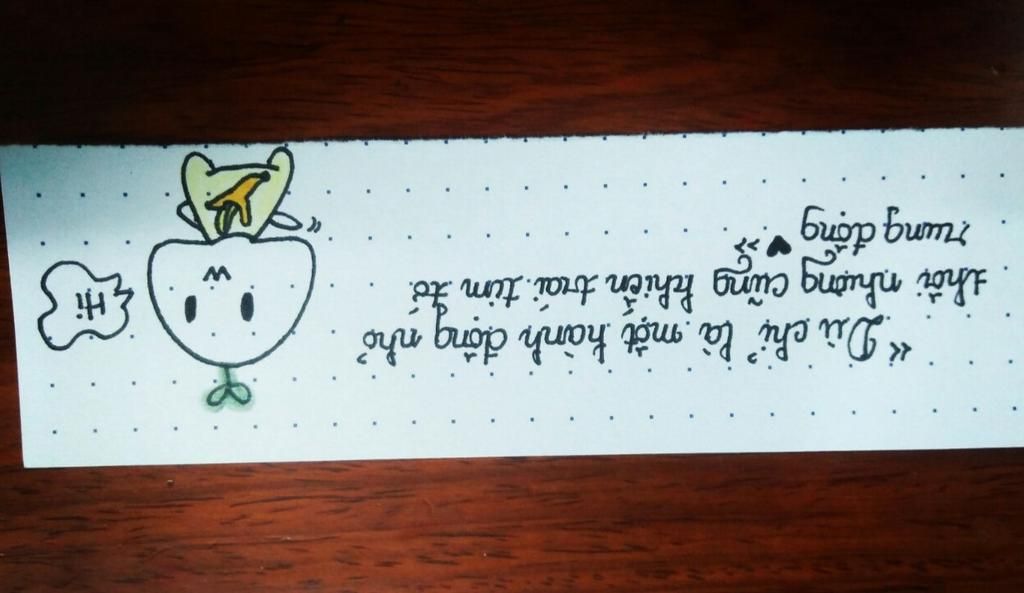 “ Dù chỉ là một hành động nhỏ
thôi nhưng cũng khiến trái tim tớ
rung động ♥ ”
Hi